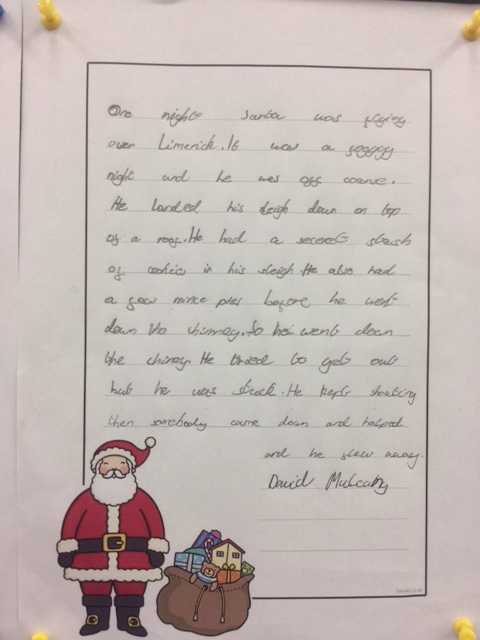 One night Santa was flying
over Limerick. It was a foggy
night and he was off course.
He landed his sleigh down on top
of a roof. He had a secret stash
of cookies in his sleigh. He also had
a few mince pies before he went
down the chimney. So he went down
the chimney. He tried to get out
but he was stuck. He kept shouting
then somebody came down and helped
and he flew away.
David Mulcahy